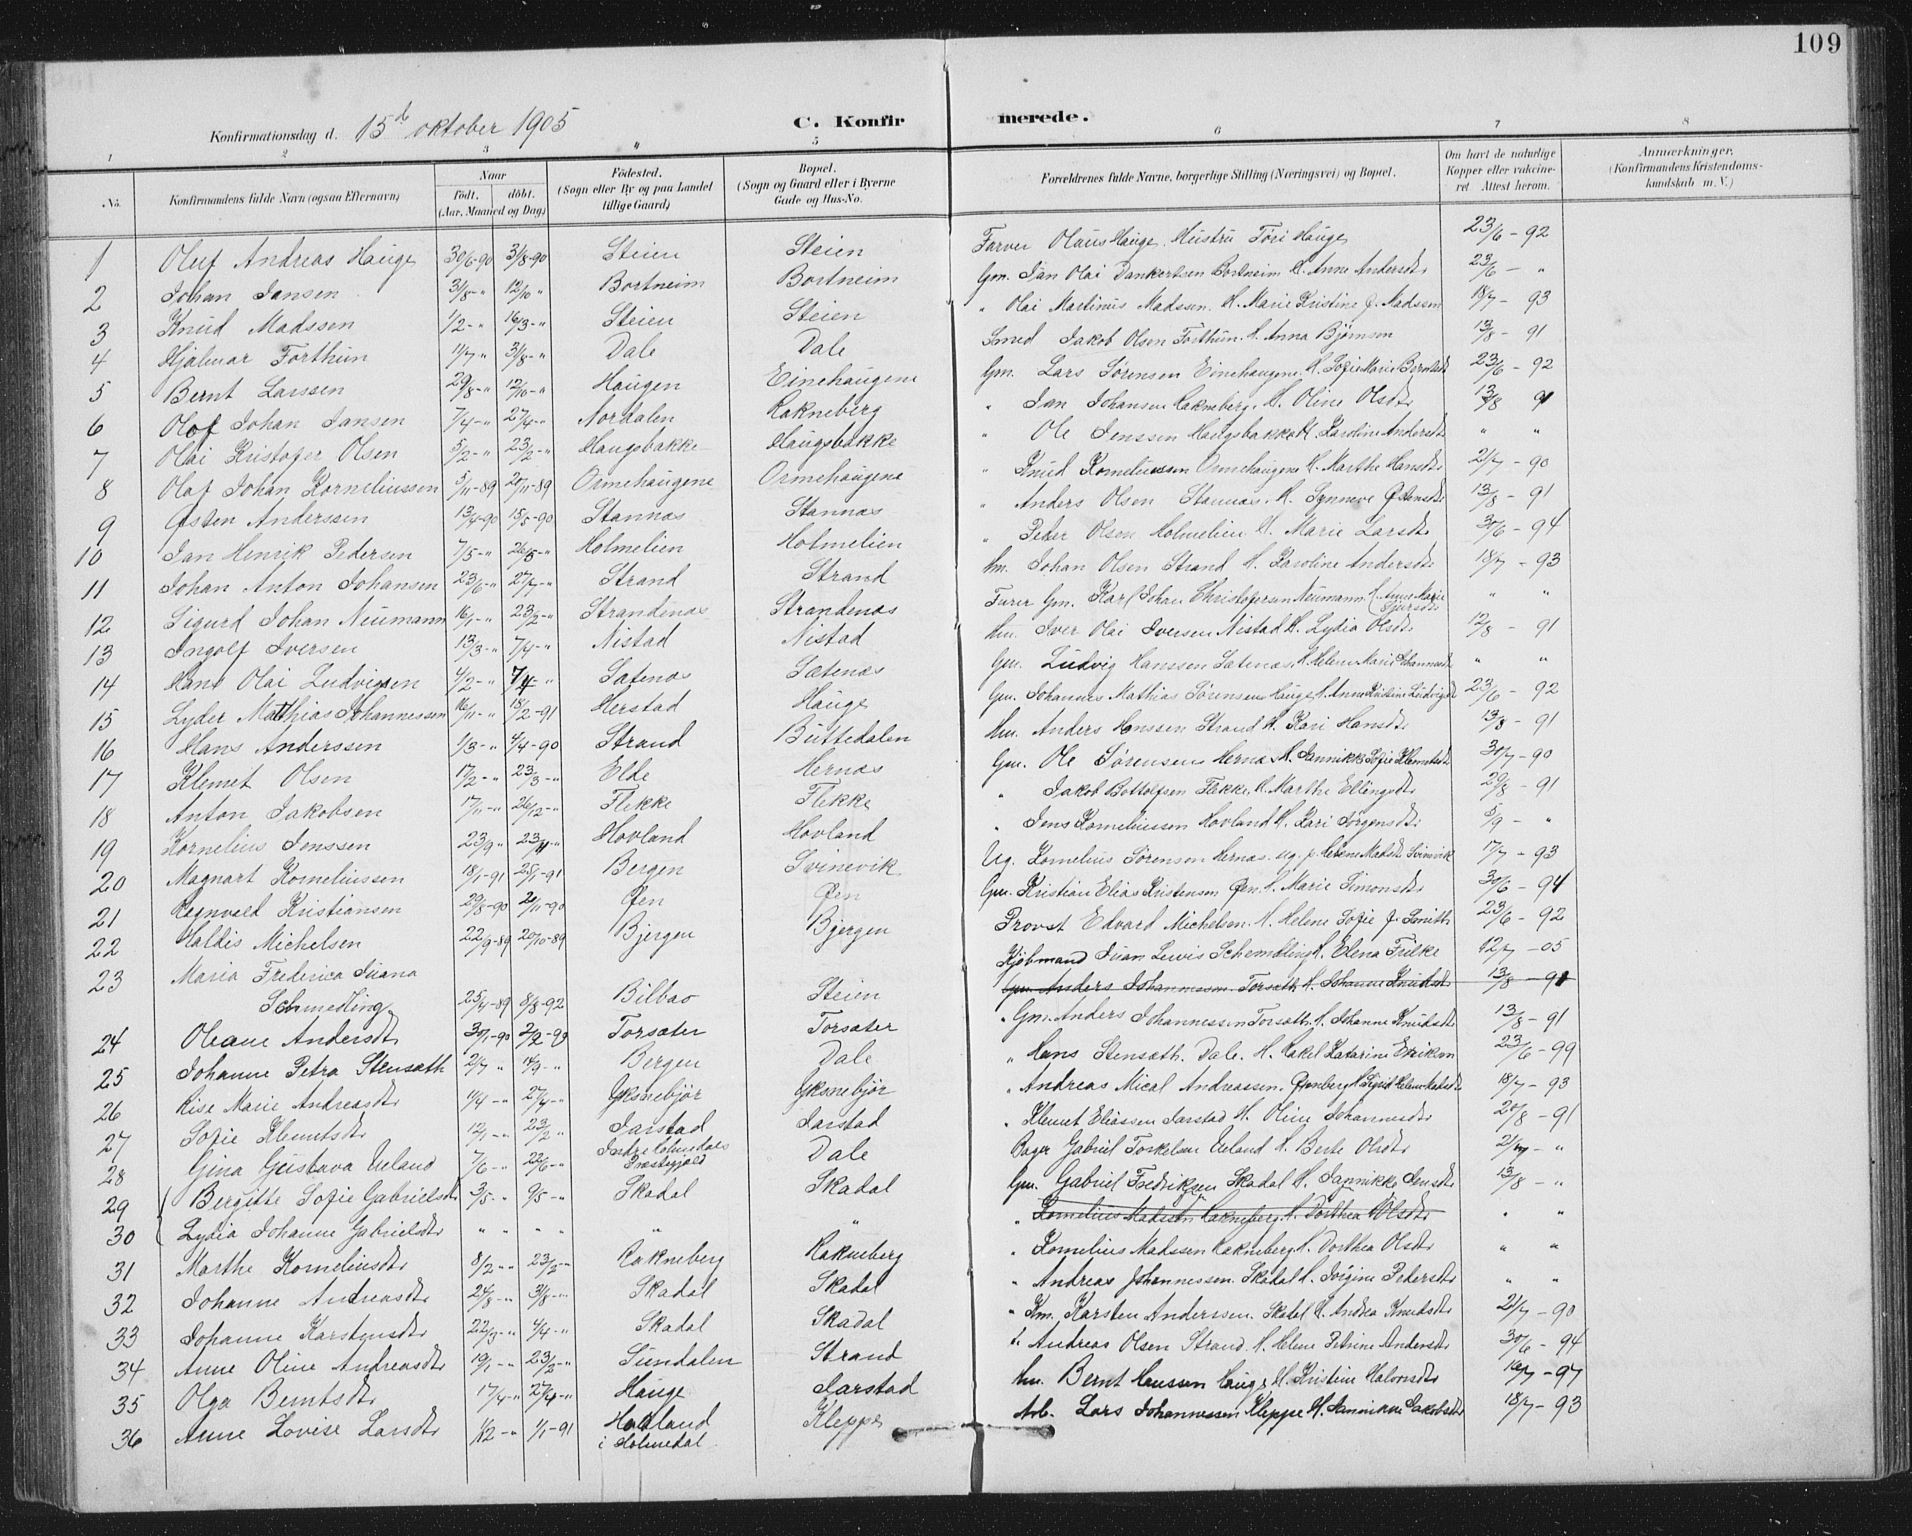 109
Konfirmationsdag d. 15d oktober 1905 C. Konfirmerede.
1 2 3 " 5 6 7 8
No. Konfirmandens fulde Navn (ogsaa Efternavn) Naar Födt. döbt. (Aar, Maaned og Dag) Födested. (Sogn eller By og paa Landet tillige Gaard) Bopæl. (Sogn og Gaard eller i Byerne Gade og Hus-No. Forældrenes fulde Navne, borgerlige Stilling (Næringsvei) og Bopæl. Om havt de naturlige Kopper eller vakcineret Attest herom. Anmærkninger. (Konfirmandens Kristendomskundskab m. V.)
1 Oluf Andreas Hauge 30/6-90 3/8-90 Steien Steien Farver Olaus Hauge. Hustru Töri Hauge 23/6-92
2 Johan Jansen 3/8-" 12/10 " Bortneim Bortneim Gm. Jan Olai Dankertsen Bortneim H. Anne Andersdtr 23/6 - "
3 Knud Madssen 1/2-" 16/3-" Steien Steien " Olai Martinus Madssen. H. Marie Kristine f. Madssen 18/7-93
4 Hjalmar Forthun 11/7-" 3/8-" Dale Dale Smed Jakob Olsen Forthun. H. Anna Bjørnson 13/8-91
5 Bernt Larssen 29/8-" 12/10-" Haugen Einehaugene Gm. Lars Sørensen Einehaugene H. Sofie Marie Berntsdtr 23/6-92
6 Olof Johan Jansen 7/4-" 27/4-" Nordalen Rakneberg " Jan Johansen Rakneberg. H. Oline Olsdtr 13/8 91
7 Olai Kristofer Olsen 5/2-" 23/2-" Haugsbakke Haugsbakke " Ole Jenssen Haugsbakke H. Karoline Andersdtr " "
8 Olaf Johan Korneliussen 5/11-89 27/11-89 Ormehaugene Ormehaugene " Knud Korneliussen Ormehaugene H. Marthe Hansdtr 21/7-90
9 Østen Anderssen 13/4-90 15/5-90 Stannas Stannas " Anders Olsen Stannas. H. Synneve Østensdtr 13/8-91
10 Jan Henrik Pedersen 7/5-" 26/5-" Holmelien Holmelien " Peder Olsen Holmelien H. Marie Larsdtr 30/6-94
11 Johan Anton Johansen 23/6-" 27/7-" Strand Strand Hm. Johan Olsen Strand H. Karoline Andersdtr 18/7-93
12 Sigurd Johan Neumann 16/1-" 23/2-" Strandenas Strandenas Furer Gm. Karl Johan Christofersen Neumann H. Anne Marie " "
13 Ingolf Iversen 13/3-" 7/4-" Nistad Nistad Hm. Iver Olai Iversen Nistad H. Lydia Olsdtr 12/8-91
14 Hans Olai Ludvigsen 4/2-" 7/4-" Satenas Sætenas Gm. Ludvig Hanssen Satenas. H. Helene Marie Johannesdtr " "
15 Lyder Matthias Johannessen 16/11-" 18/2-91 Herstad Hauge Gm. Johannes Mathias Sørensen Hauge H. Anne Kristine Ludvigsdtr 23/6-92
16 Hans Anderssen 1/3-" 4/4-90 Strand Buttedalen Hm. Anders Hanssen Strand H. Kari Hansdtr 13/8-91
17 Klemet Olsen 17/2-" 23/3-" Elde Hernæs Gm. Ole Sørensen Hernæs H. Jannikke Sofie Klemetsdtr 30/7-90
18 Anton Jakobsen 17/11-" 26/12-" Flekke Flekke " Jakob Bottolfsen Flekke. H. Marthe Ellingsdtr 29/8-91
19 Kornelius Jenssen 23/9 " 23/11-" Hovland Hovland " Jens Korneliussen Hovland H. Kari Jørgensdtr 5/9-"
20 Magnart Korneliussen 18/1-91 25/1-91 Bergen Svinevik Ug. Kornelius Sørensen Hernæs. ug. p. Helene Madsdtr Svinvik 17/7-93
21 Regnvald Kristiansen 29/8-90 2/11-90 Øen Øen Gm. Kristian Elias Kristensen Øen. H. Marie Simonsdtr 30/6-94
22 Haldis Michelsen 22/9-89 20/10-89 Bjergen Bjergen Provst Edvard Michelsen. H. Helene Sofie f. Smitt 23/6-92
23 Maria Frederica Juana Schmedling 25/4-89 8/8-92 Bilbao Steien Kjøbmand Juan Lewis Schemdling H. Elena Frilke 12/7-05
Gm. Anders Johannessen Torsath H. Johanne Knudsdtr 13/8-91
24 Oleane Andersdtr 30/1-90 2/2-90 Torsæter Torsæter " Gm. Anders Johannessen Torsath H. Johanne Knudsdtr 13/8-91
25 Johanne Petra Stensath 2/7 " 14/9-" Bergen Dale " Hans Stensæth. Dale. H. Rakel Katarine Eriksen 23/6-99
26 Rise Marie Andreasdtr 11/4-" 27/4-" Yksnebjör Yksnebjör " Andreas Mical Andreassen. H. Sigrid Helene Madsdtr 18/7-93
27 Sofie Klemetsdtr 12/1-" 23/2 " Jarstad Jarstad " Klemet Eliassen Jarstad H. Oline Johannesdtr 20/8-91
28 Gina Gustava Ueland 7/6-" 22/6-" Indre Holmedals Præstegjeld Dale Bager Gabriel Torkelsen Ueland H. Berte Olsdtr 21/7-"
29 ( Bergitte Sofie Gabrielsdtr 3/5-" 9/5-" Skadal Skadal Gm. Gabriel Fredriksen Skadal H. Jannikke Jensdtr 13/8-"
30 ( Lydia Johanne Gabrielsdtr " " " " " " " Kornelius Madssen Rakneberg. H. Dorthea Olsdtr " "
31 Marthe Korneliusdtr 8/2-" 23/2-" Rakneberg Rakneberg " Kornelius Madssen Rakneberg H. Dorthea Olsdtr " "
32 Johanne Andreasdtr 24/8-" 31/8-" Skadal Skadal " Andreas Johannessen. Skadal H. Jørgine Pedersdtr " "
33 Johanne Karstensdtr 22/3-" 4/4-" Skadal Skadal " Hm. Karsten Anderssen. Skadal H. Andrea Knudsdtr 21/7-90
34 Anne Oline Andreasdtr 19/1-" 23/2-" Sundalen Strand " Andreas Olsen Strand. H. Helene Petrine Andersdtr 30/6-94
35 Olga Berntsdtr 17/4-" 27/4-" Hauge Jarstad Hm. Bernt Hanssen Hauge H. Kristine Halvorsdtr 16/7-97
36 Anne Lovise Larsdtr 1/12-" 1/1-91 Hadland i Holmedal Kleppe Arb. Lars Johannessen Kleppe H. Jannikke Jakobsdtr 18/7-93